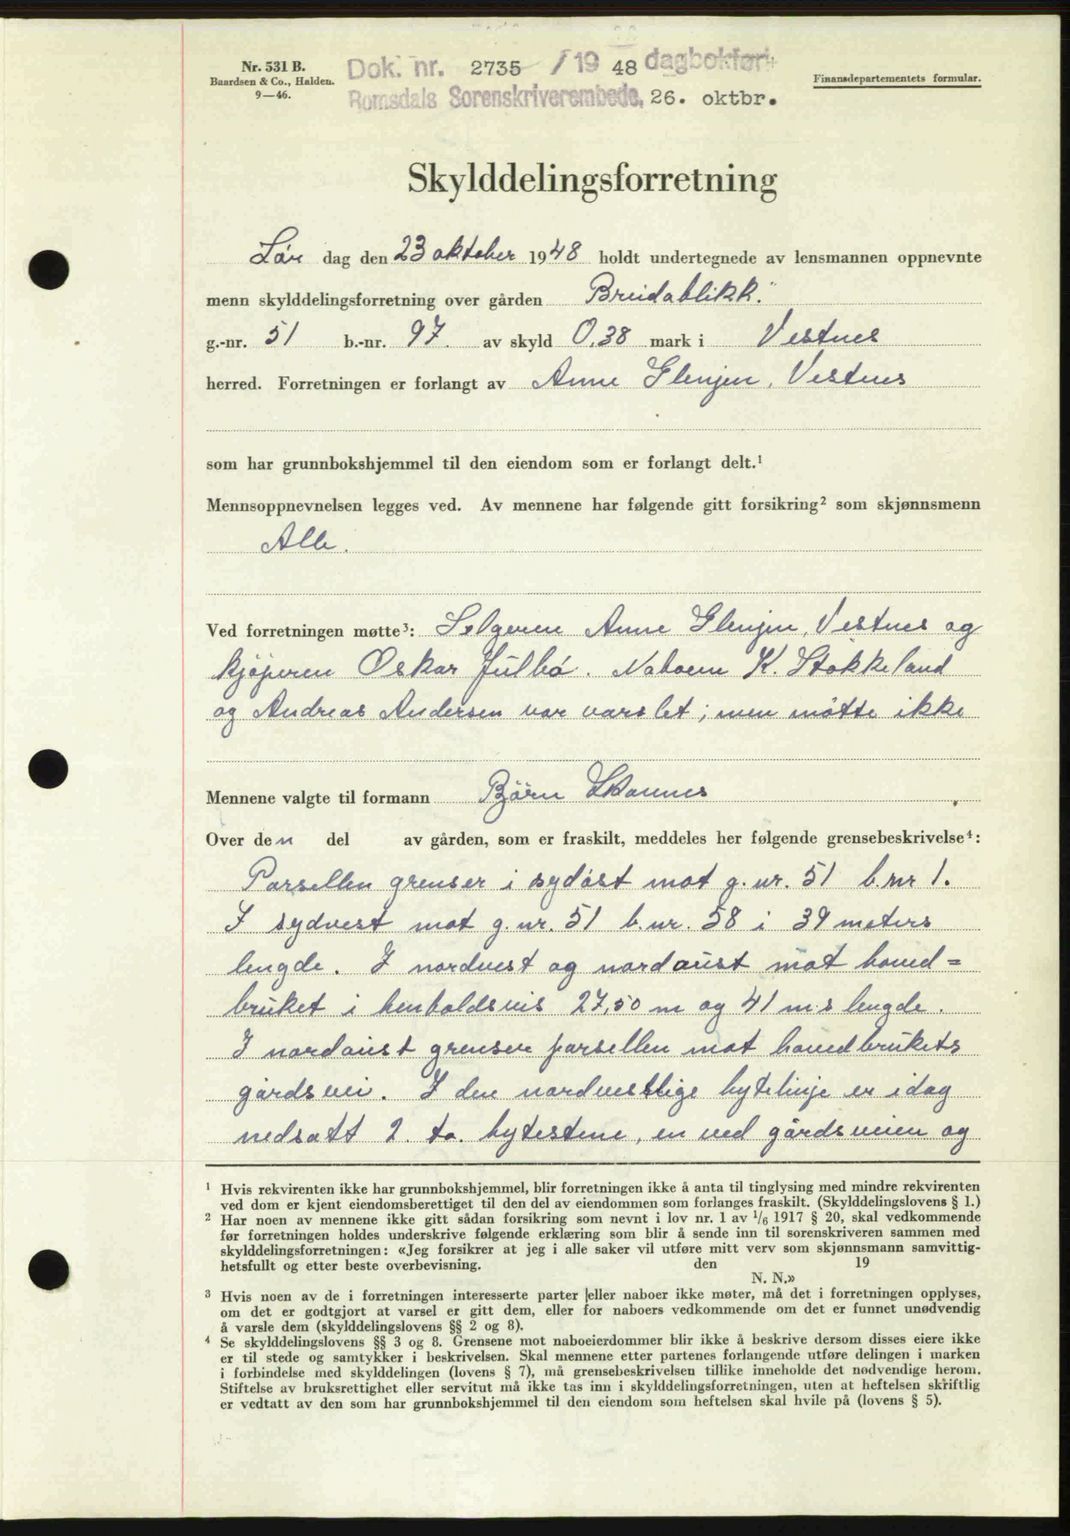 Nr. 531 B.
Baardsen & Co., Halden.
9—46.
Dok. nr. 2735 / 19 48 dagbokført
Romsdals Sorenskriverembede, 26. oktbr.
Finansdepartementets formular.
Skylddelingsforretning
Lør dag den 23 oktober 1948 holdt undertegnede av lensmannen oppnevnte
menn skylddelingsforretning over gården Breidablikk."
g.-nr. 51 b.-nr. 97. av skyld 0,38 mark i Vestnes
herred. Forretningen er forlangt av Anne Glenjen, Vestnes
som har grunnbokshjemmel til den eiendom som er forlangt delt.¹
Mennsoppnevnelsen legges ved. Av mennene har følgende gitt forsikring² som skjønnsmenn
Alle.
Ved forretningen møtte³: Selgeren Anne Glenjen, Vestnes og
kjøperen Oskar Julbø. Naboene K. Stokkeland
og Andreas Andersen var varslet; men møtte ikke
Mennene valgte til formann Bjørn Skannes
Over den del av gården, som er fraskilt, meddeles her følgende grensebeskrivelse⁴:
Parsellen grenser i sydøst mot g.nr. 51 b.nr 1.
I sydvest mot g.nr. 51 b.nr. 58 i 39 meters
lengde. I nordvest og nordaust mot hoved=
bruket i henholdsvis 27,50 m og 41 m.s lengde.
I nordaust grenser parsellen mot hovedbrukets
gårdsvei. I den nordvestlige bytelinje er idag
nedsatt 2. to. bytestene, en ved gårdsveien og
¹ Hvis rekvirenten ikke har grunnbokshjemmel, blir forretningen ikke å anta til tinglysing med mindre rekvirenten
ved dom er kjent eiendomsberettiget til den del av eiendommen som forlanges fraskilt. (Skylddelingslovens § 1.)
² Har noen av mennene ikke gitt sådan forsikring som nevnt i lov nr. 1 av 1/6 1917 § 20, skal vedkommende
før forretningen holdes underskrive følgende erklæring som blir å sende inn til sorenskriveren sammen med
skylddelingsforretningen: «Jeg forsikrer at jeg i alle saker vil utføre mitt verv som skjønnsmann samvittig-
hetsfullt og etter beste overbevisning. den 19
N. N.»
³ Hvis noen av de i forretningen interesserte parter eller naboer ikke møter, må det i forretningen opplyses,
om det er godtgjort at varsel er gitt dem, eller for naboers vedkommende om det er funnet unødvendig
å varsle dem (skylddelingslovens §§ 2 og 8).
⁴ Se skylddelingslovens §§ 3 og 8. Grensene mot naboeierdommer blir ikke å beskrive dersom disses eiere ikke
er til stede og samtykker i beskrivelsen. Skal mennene etter partenes forlangende utføre delingen i marken
i forbindelse med skylddelingen (lovens § 7), må grensebeskrivelsen tillike inneholde det nødvendige herom.
Stiftelse av bruksrettighet eller servitut må ikke tas inn i skylddelingsforretningen, uten at heftelsen skriftlig
er vedtatt av den som har grunnbokshjemmel til den eiendom som heftelsen skal hvile på (lovens § 5).